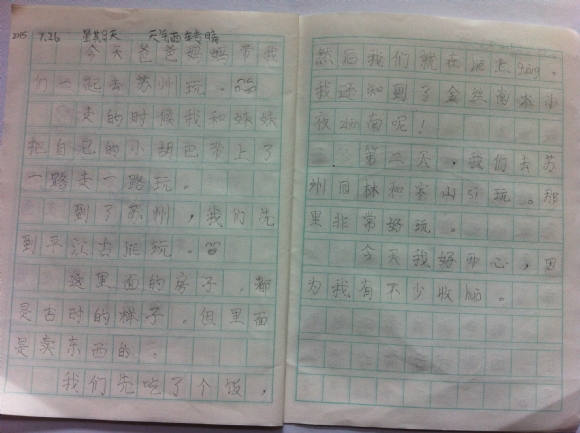 2015 7.26 星其日天 天气西转晴
今天爸爸妈妈带我
们一起去苏州玩。
走的时候我和妹妹
把自己的小胡巴带上了
一路走一路玩。
到了苏州，我们先
到平江古街玩。
这里面的房子，都
是古时的样子。但里面
是卖东西的。
我们先吃了个饭，
然后我们就在街上guàng。
我还知到了金丝楠木
zhēn 呢！
第二天，我们去苏
州园林和寒山寺玩。那
里非常好玩。
今天我好开心，因
为我有不少收huò。